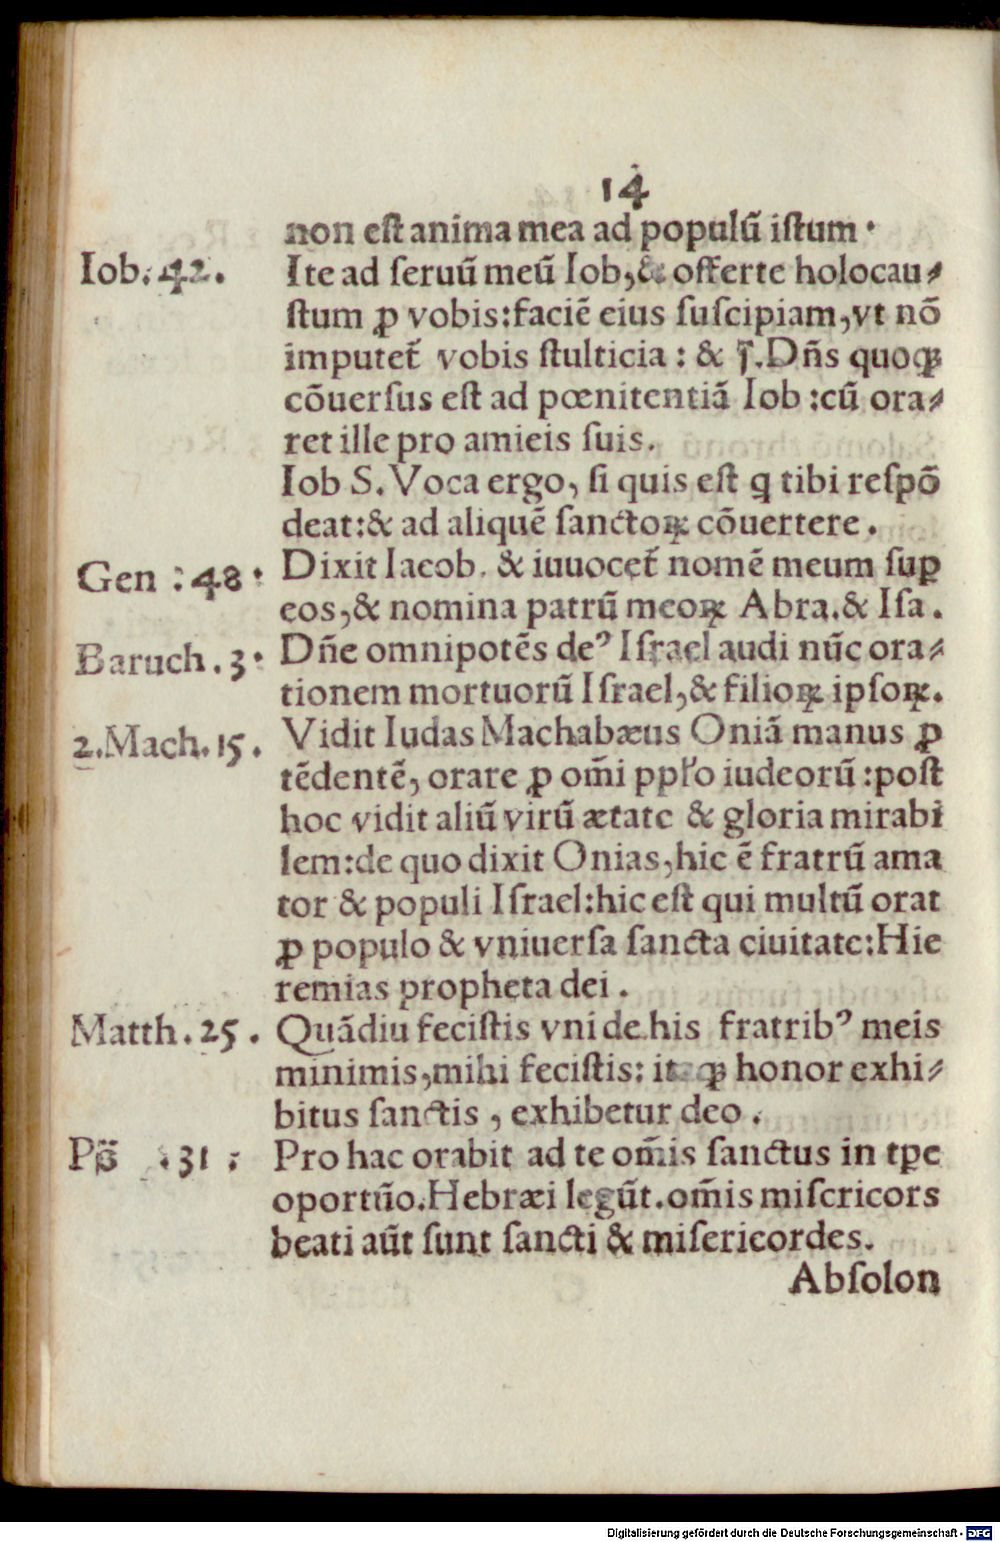 14
non est anima mea ad populũ istum·
Iob. 42.
Ite ad seruũ meũ Iob, & offerte holocau⸗
stum ꝓ vobis: faciẽ eius suscipiam, vt nõ
imputet̃ vobis stulticia: & j̃. Dñs quoqꝫ
cõuersus est ad pœnitentiã Iob: cũ ora⸗
ret ille pro amieis suis.
Iob S. Voca ergo, si quis est q tibi respõ
deat: & ad aliquẽ sanctoꝝ cõuertere.
Gen : 48·
Dixit Iacob. & iuuocet̃ nomẽ meum suꝑ
eos, & nomina patrũ meoꝝ Abra. & Isa.
Baruch. 3·
Dñe omnipotẽs deꝰ Israel audi nũc ora⸗
tionem mortuorũ Israel, & filioꝝ ipsoꝝ.
2. Mach. 15.
Vidit Iudas Machabæus Oniã manus ꝓ
tẽdentẽ, orare ꝓ om̃i ppl̃o iudeorũ: post
hoc vidit aliũ virũ ætate & gloria mirabi
lem: de quo dixit Onias, hic ẽ fratrũ ama
tor & populi Israel: hic est qui multũ orat
ꝓ populo & vniuersa sancta ciuitate: Hie
remias propheta dei.
Matth. 25.
Quãdiu fecistis vni de his fratribꝰ meis
minimis, mihi fecistis: itaqꝫ honor exhi⸗
bitus sanctis, exhibetur deo.
Pß̃ . 31 ;
Pro hac orabit ad te om̃is sanctus in tꝑe
oportũo. Hebræi legũt. om̃is misericors
beati aũt sunt sancti & misericordes.
Absolon
Digitalisierung gefördert durch die Deutsche Forschungsgemeinschaft - DFG